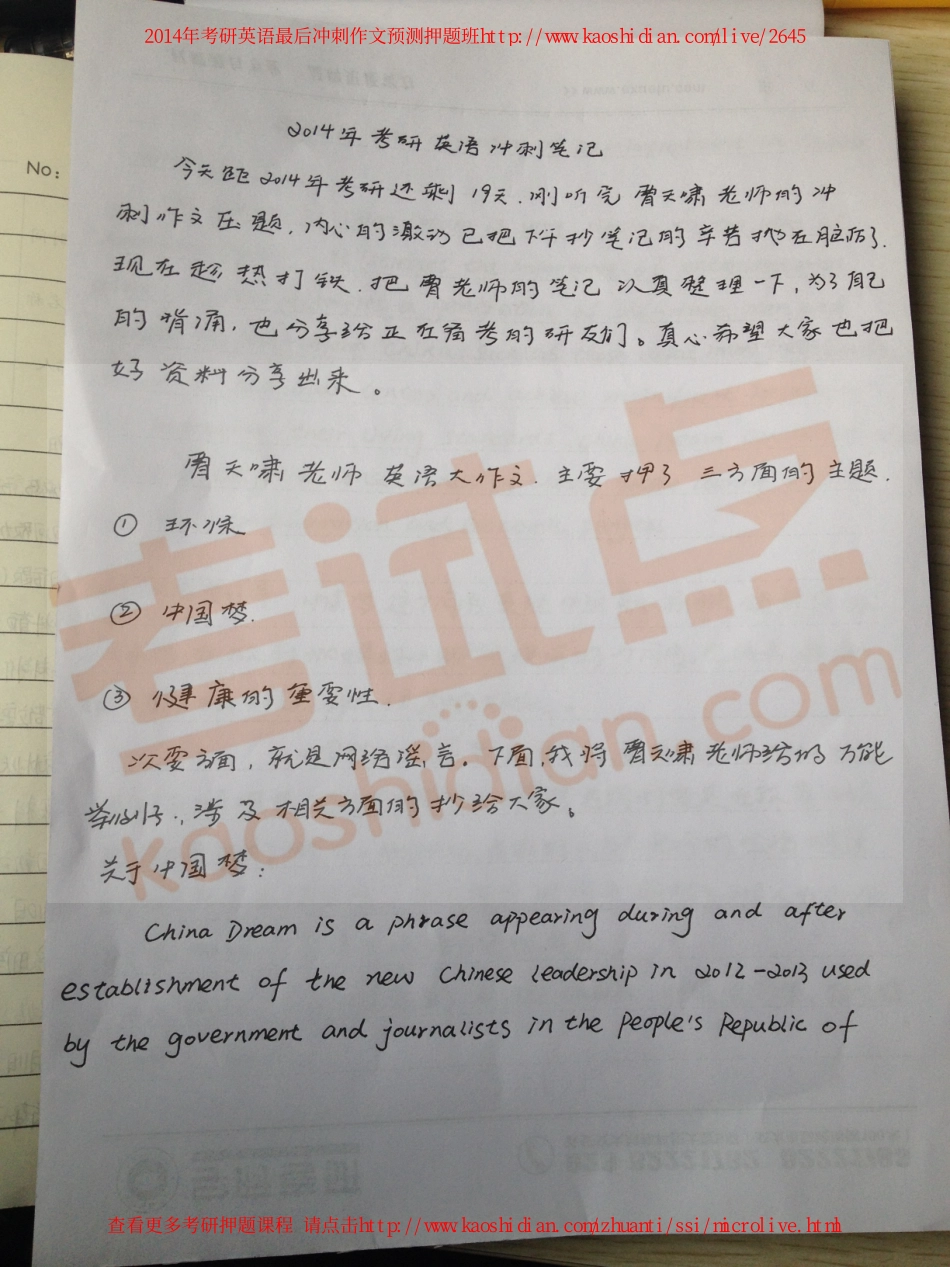 2014年考研英语最后冲刺作文预测押题班http://www.kaoshidian.com/live/2645
No:
2014年考研英语冲刺笔记
今天距2014年考研还剩19天.刚听完贾天啸老师的冲
刺作文压题,内心的激动已把下午抄笔记的辛苦抛在脑后了.
现在趁热打铁.把贾老师的笔记次要整理一下,为了自己
的背诵,也分享给正在备考的研友们。真心希望大家也把
好资料分享出来。
贾天啸老师英语大作文.主要押了三方面的主题.
① 环保
② 中国梦.
③ 健康的重要性.
次要方面,就是网络谣言。下面,我将贾天啸老师给的万能
举例句.,涉及相关方面的抄给大家。
关于中国梦:
China Dream is a phrase appearing during and after
establishment of the new Chinese leadership in 2012-2013 used
by the government and journalists in the People's Republic of
考试点
kaoshidian.com
查看更多考研押题课程 请点击http://www.kaoshidian.com/zhuanti/ssi/microlive.html